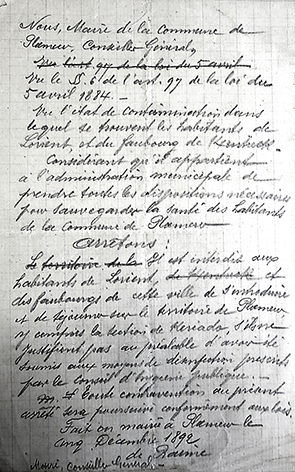 Nous, Maire de la Commune de
Plœmeur, Conseiller Général,
Vu l'art 97 de la loi du 5 avril
Vu le § 6 de l'art. 97 de la loi du
5 avril 1884. —
Vu l'état de contamination dans
lequel se trouvent les habitants de
Lorient et du faubourg de Kentrech
Considérant qu'il appartient
à l'administration municipale de
prendre toutes les dispositions nécessaires
pour sauvegarder la santé des habitants
de la Commune de Plœmeur
Arrêtons :
Le territoire de la Il est interdit aux
habitants de Lorient, de Kerentrech et
des faubourgs de cette ville de s'introduire
et de séjourner sur le territoire de Plœmeur
y compris la section de Keriado s'ils ne
justifient pas au préalable d'avoir été
soumis aux moyens de désinfection prescrits
par le Conseil d'hygiène publique. —
Toute contravention au présent
arrêté sera poursuivie conformément aux lois.
Fait en mairie à Plœmeur le
cinq Décembre 1892
Maire, Conseiller Général.